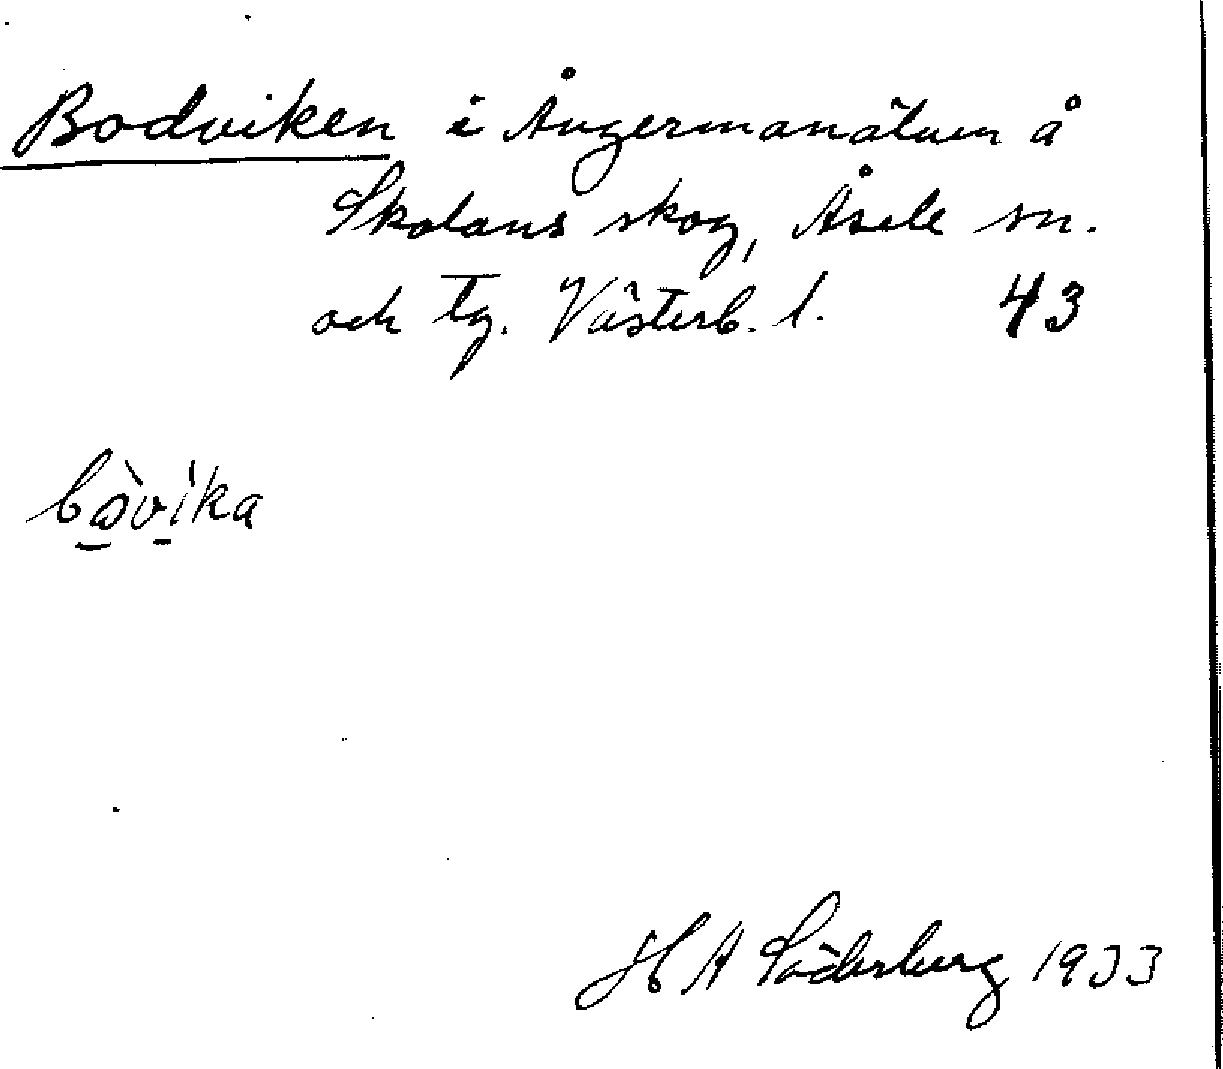 Bodviken i Ångermanälven å
Skolans skog, Åsele sn.
och tg. Västerb. l. 43
bòvìka
H A Söderberg 1933